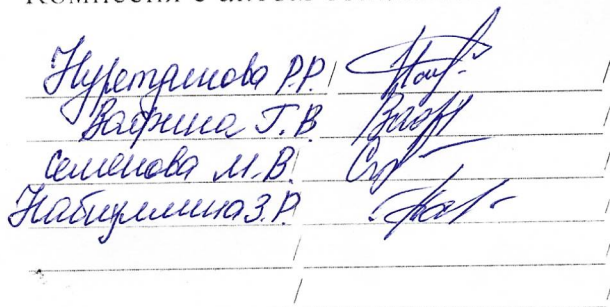 Комиссия с
Нуретдинова Р.Р. /
Вафина Г.В.
Семенова М.В.
Набиуллина З.Р.